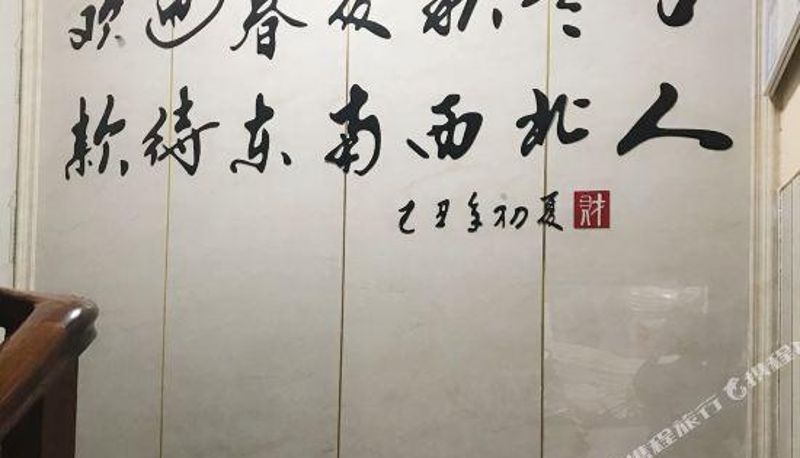 欢迎春夏秋冬客
款待东南西北人
乙丑年初夏
财
携程旅行 携程